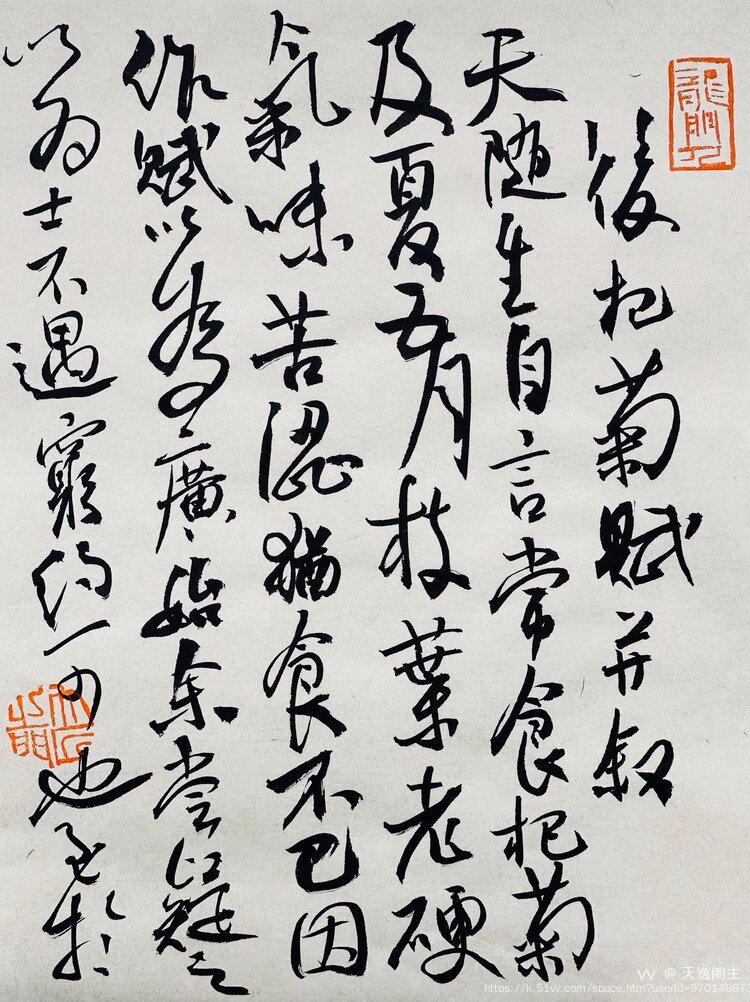 後杞菊賦并叙
天随生自言常食杞菊
及夏五月枝葉老硬
氣味苦澀猶食不已因
作賦以為廣始余嘗疑之
以为士不遇窮約可也至於
@ 天逸閣主
https://k.51w.com/space.htm?userId=97014867